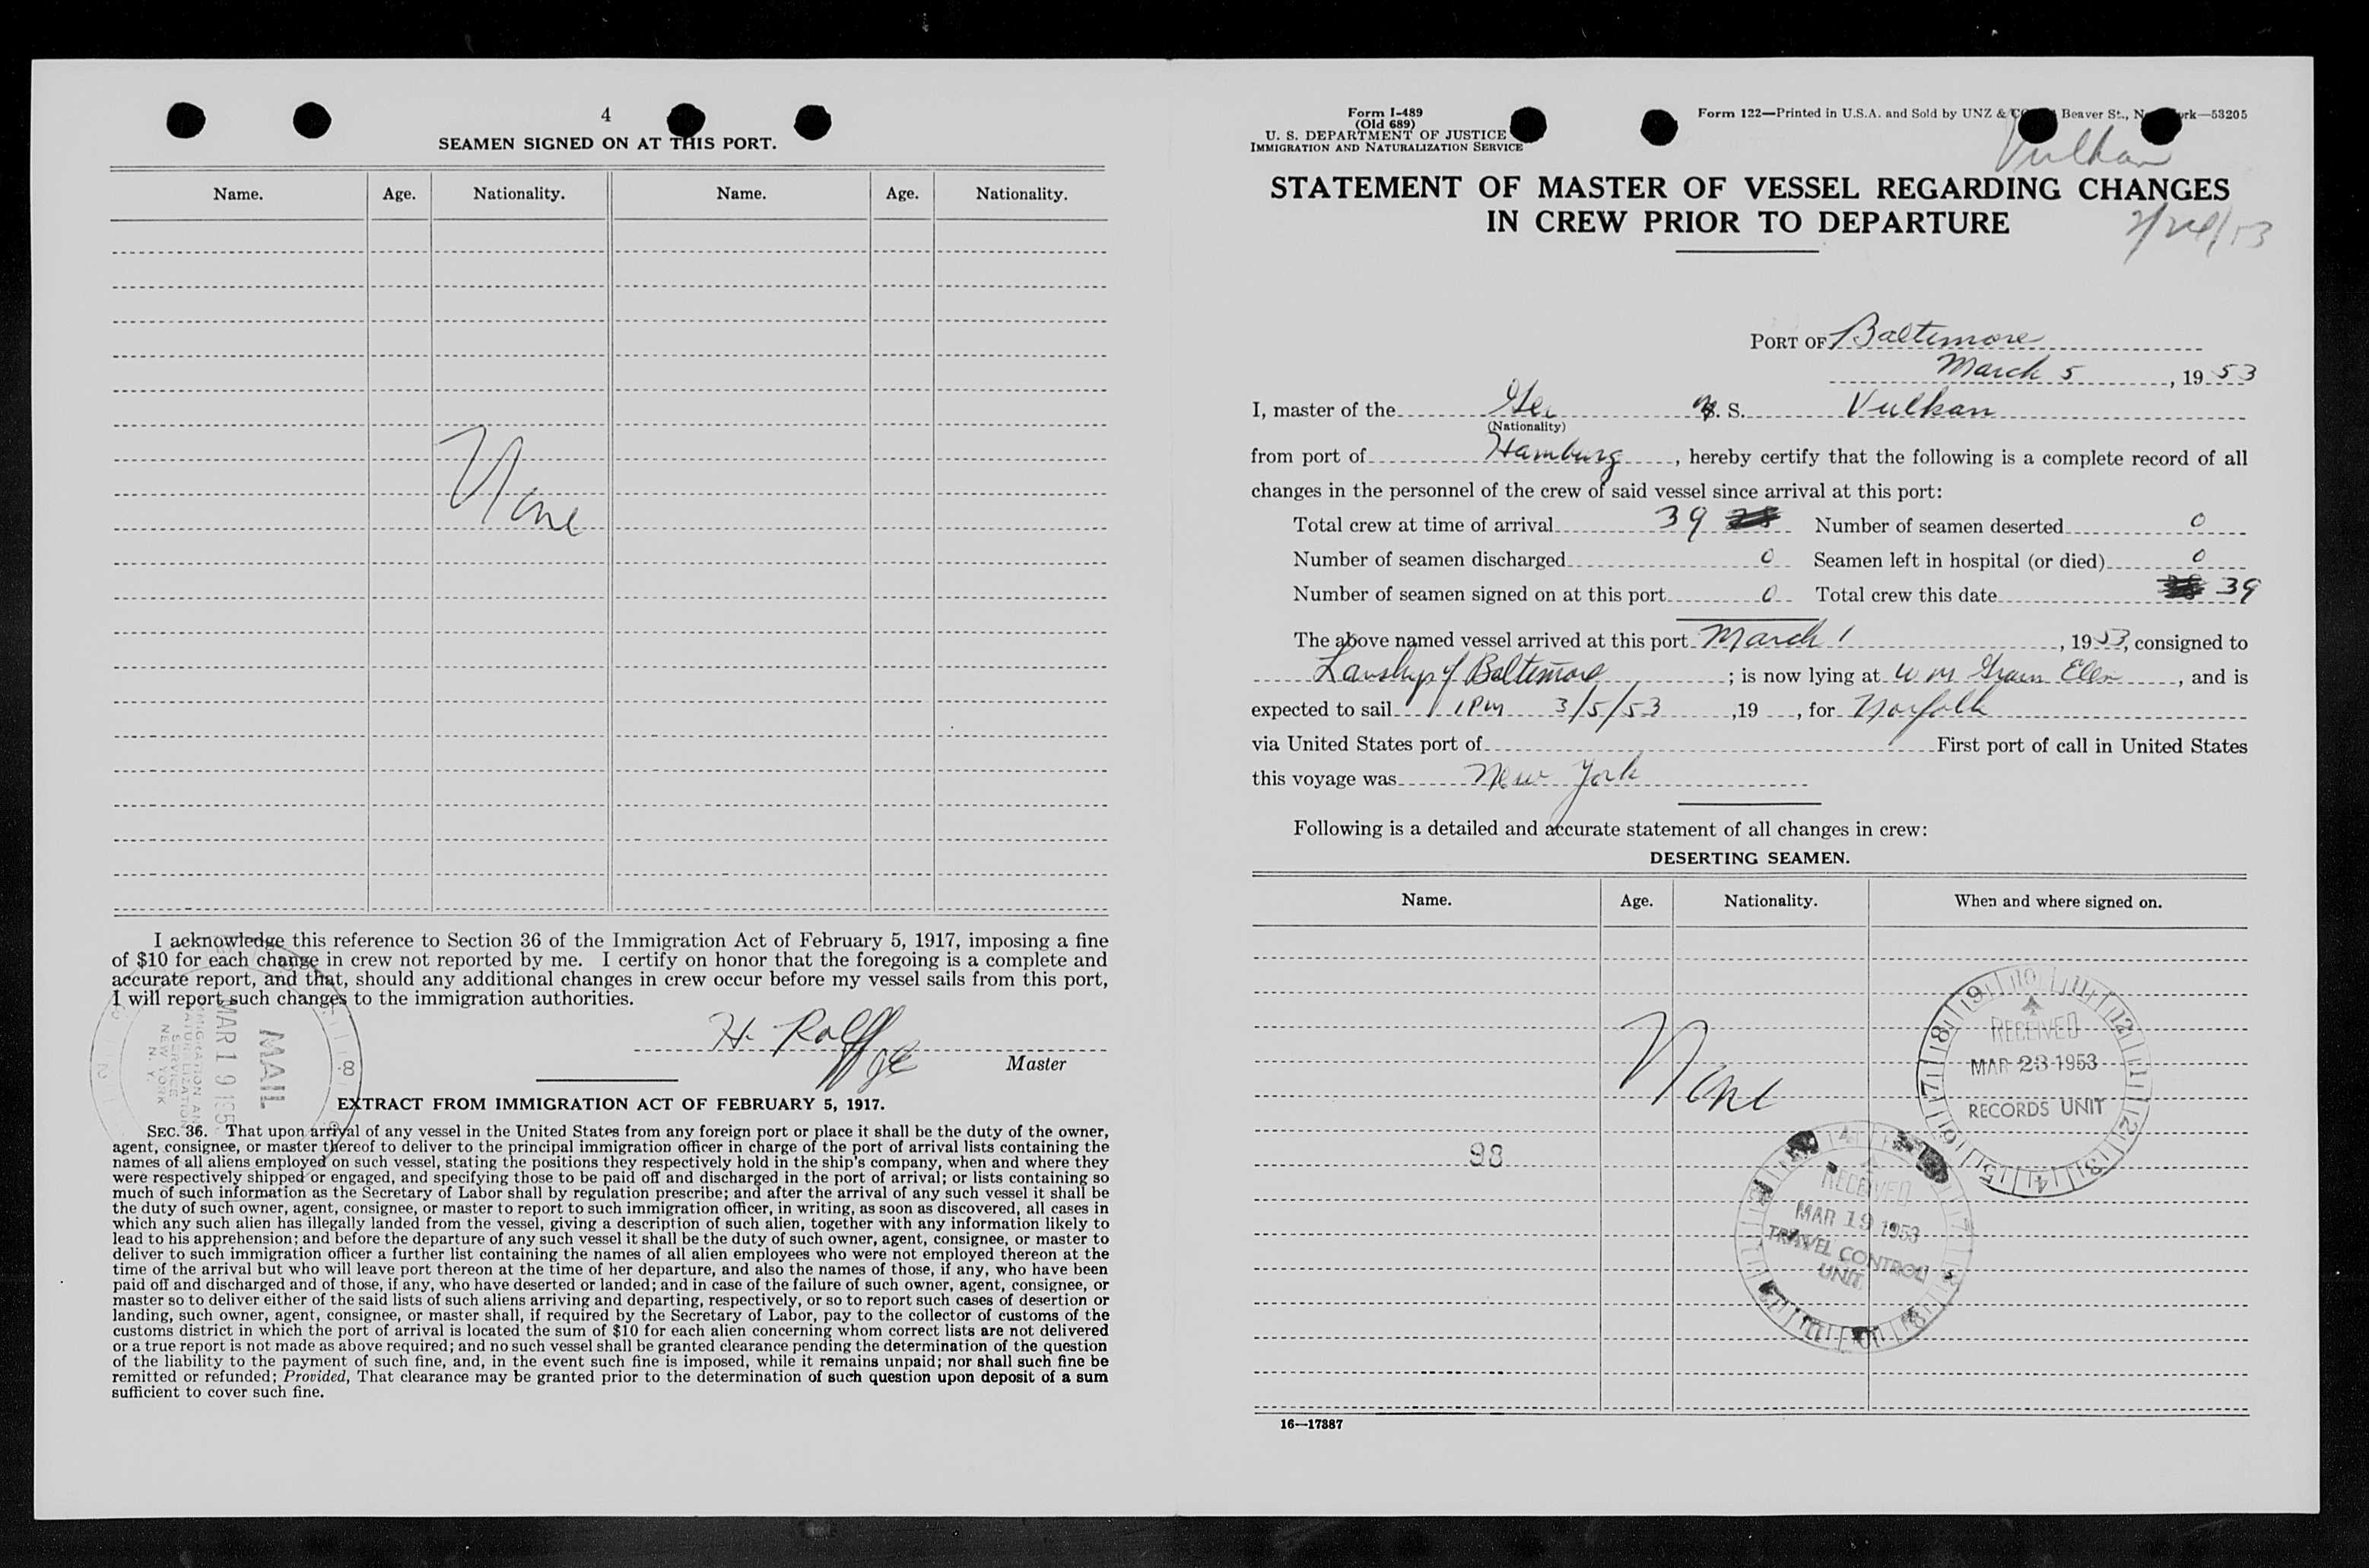 4
SEAMEN SIGNED ON AT THIS PORT.
Name. Age. Nationality. Name. Age. Nationality.
None
I acknowledge this reference to Section 36 of the Immigration Act of February 5, 1917, imposing a fine
of $10 for each change in crew not reported by me. I certify on honor that the foregoing is a complete and
accurate report, and that, should any additional changes in crew occur before my vessel sails from this port,
I will report such changes to the immigration authorities.
MAIL
MAR 19 195
IMMIGRATION AND
NATURALIZATION
SERVICE
NEW YORK
N. Y.
H. Rolff
Master
EXTRACT FROM IMMIGRATION ACT OF FEBRUARY 5, 1917.
SEC. 36. That upon arrival of any vessel in the United States from any foreign port or place it shall be the duty of the owner,
agent, consignee, or master thereof to deliver to the principal immigration officer in charge of the port of arrival lists containing the
names of all aliens employed on such vessel, stating the positions they respectively hold in the ship's company, when and where they
were respectively shipped or engaged, and specifying those to be paid off and discharged in the port of arrival; or lists containing so
much of such information as the Secretary of Labor shall by regulation prescribe; and after the arrival of any such vessel it shall be
the duty of such owner, agent, consignee, or master to report to such immigration officer, in writing, as soon as discovered, all cases in
which any such alien has illegally landed from the vessel, giving a description of such alien, together with any information likely to
lead to his apprehension; and before the departure of any such vessel it shall be the duty of such owner, agent, consignee, or master to
deliver to such immigration officer a further list containing the names of all alien employees who were not employed thereon at the
time of the arrival but who will leave port thereon at the time of her departure, and also the names of those, if any, who have been
paid off and discharged and of those, if any, who have deserted or landed; and in case of the failure of such owner, agent, consignee, or
master so to deliver either of the said lists of such aliens arriving and departing, respectively, or so to report such cases of desertion or
landing, such owner, agent, consignee, or master shall, if required by the Secretary of Labor, pay to the collector of customs of the
customs district in which the port of arrival is located the sum of $10 for each alien concerning whom correct lists are not delivered
or a true report is not made as above required; and no such vessel shall be granted clearance pending the determination of the question
of the liability to the payment of such fine, and, in the event such fine is imposed, while it remains unpaid; nor shall such fine be
remitted or refunded; Provided, That clearance may be granted prior to the determination of such question upon deposit of a sum
sufficient to cover such fine.
Form I-489
(Old 689)
U. S. DEPARTMENT OF JUSTICE
IMMIGRATION AND NATURALIZATION SERVICE
Form 122—Printed in U.S.A. and Sold by UNZ & Beaver St., 53205
Vulkan
STATEMENT OF MASTER OF VESSEL REGARDING CHANGES
IN CREW PRIOR TO DEPARTURE
PORT OF Baltimore
March 5, 19 53
I, master of the Ger M. S. Vulkan
(Nationality)
from port of Hamburg, hereby certify that the following is a complete record of all
changes in the personnel of the crew of said vessel since arrival at this port:
Total crew at time of arrival 39 Number of seamen deserted 0
Number of seamen discharged 0 Seamen left in hospital (or died) 0
Number of seamen signed on at this port 0 Total crew this date 39
The above named vessel arrived at this port March 1, 1953, consigned to
of Baltimore; is now lying at W M Grain Elev, and is
expected to sail 1PM 3/5/53, 19 , for Norfolk
via United States port of First port of call in United States
this voyage was New York
Following is a detailed and accurate statement of all changes in crew:
DESERTING SEAMEN.
Name. Age. Nationality. When and where signed on.
None
98
RECEIVED
MAR 23 1953
RECORDS UNIT
RECEIVED
MAR 19 1953
TRAVEL CONTROL
UNIT
16—17887